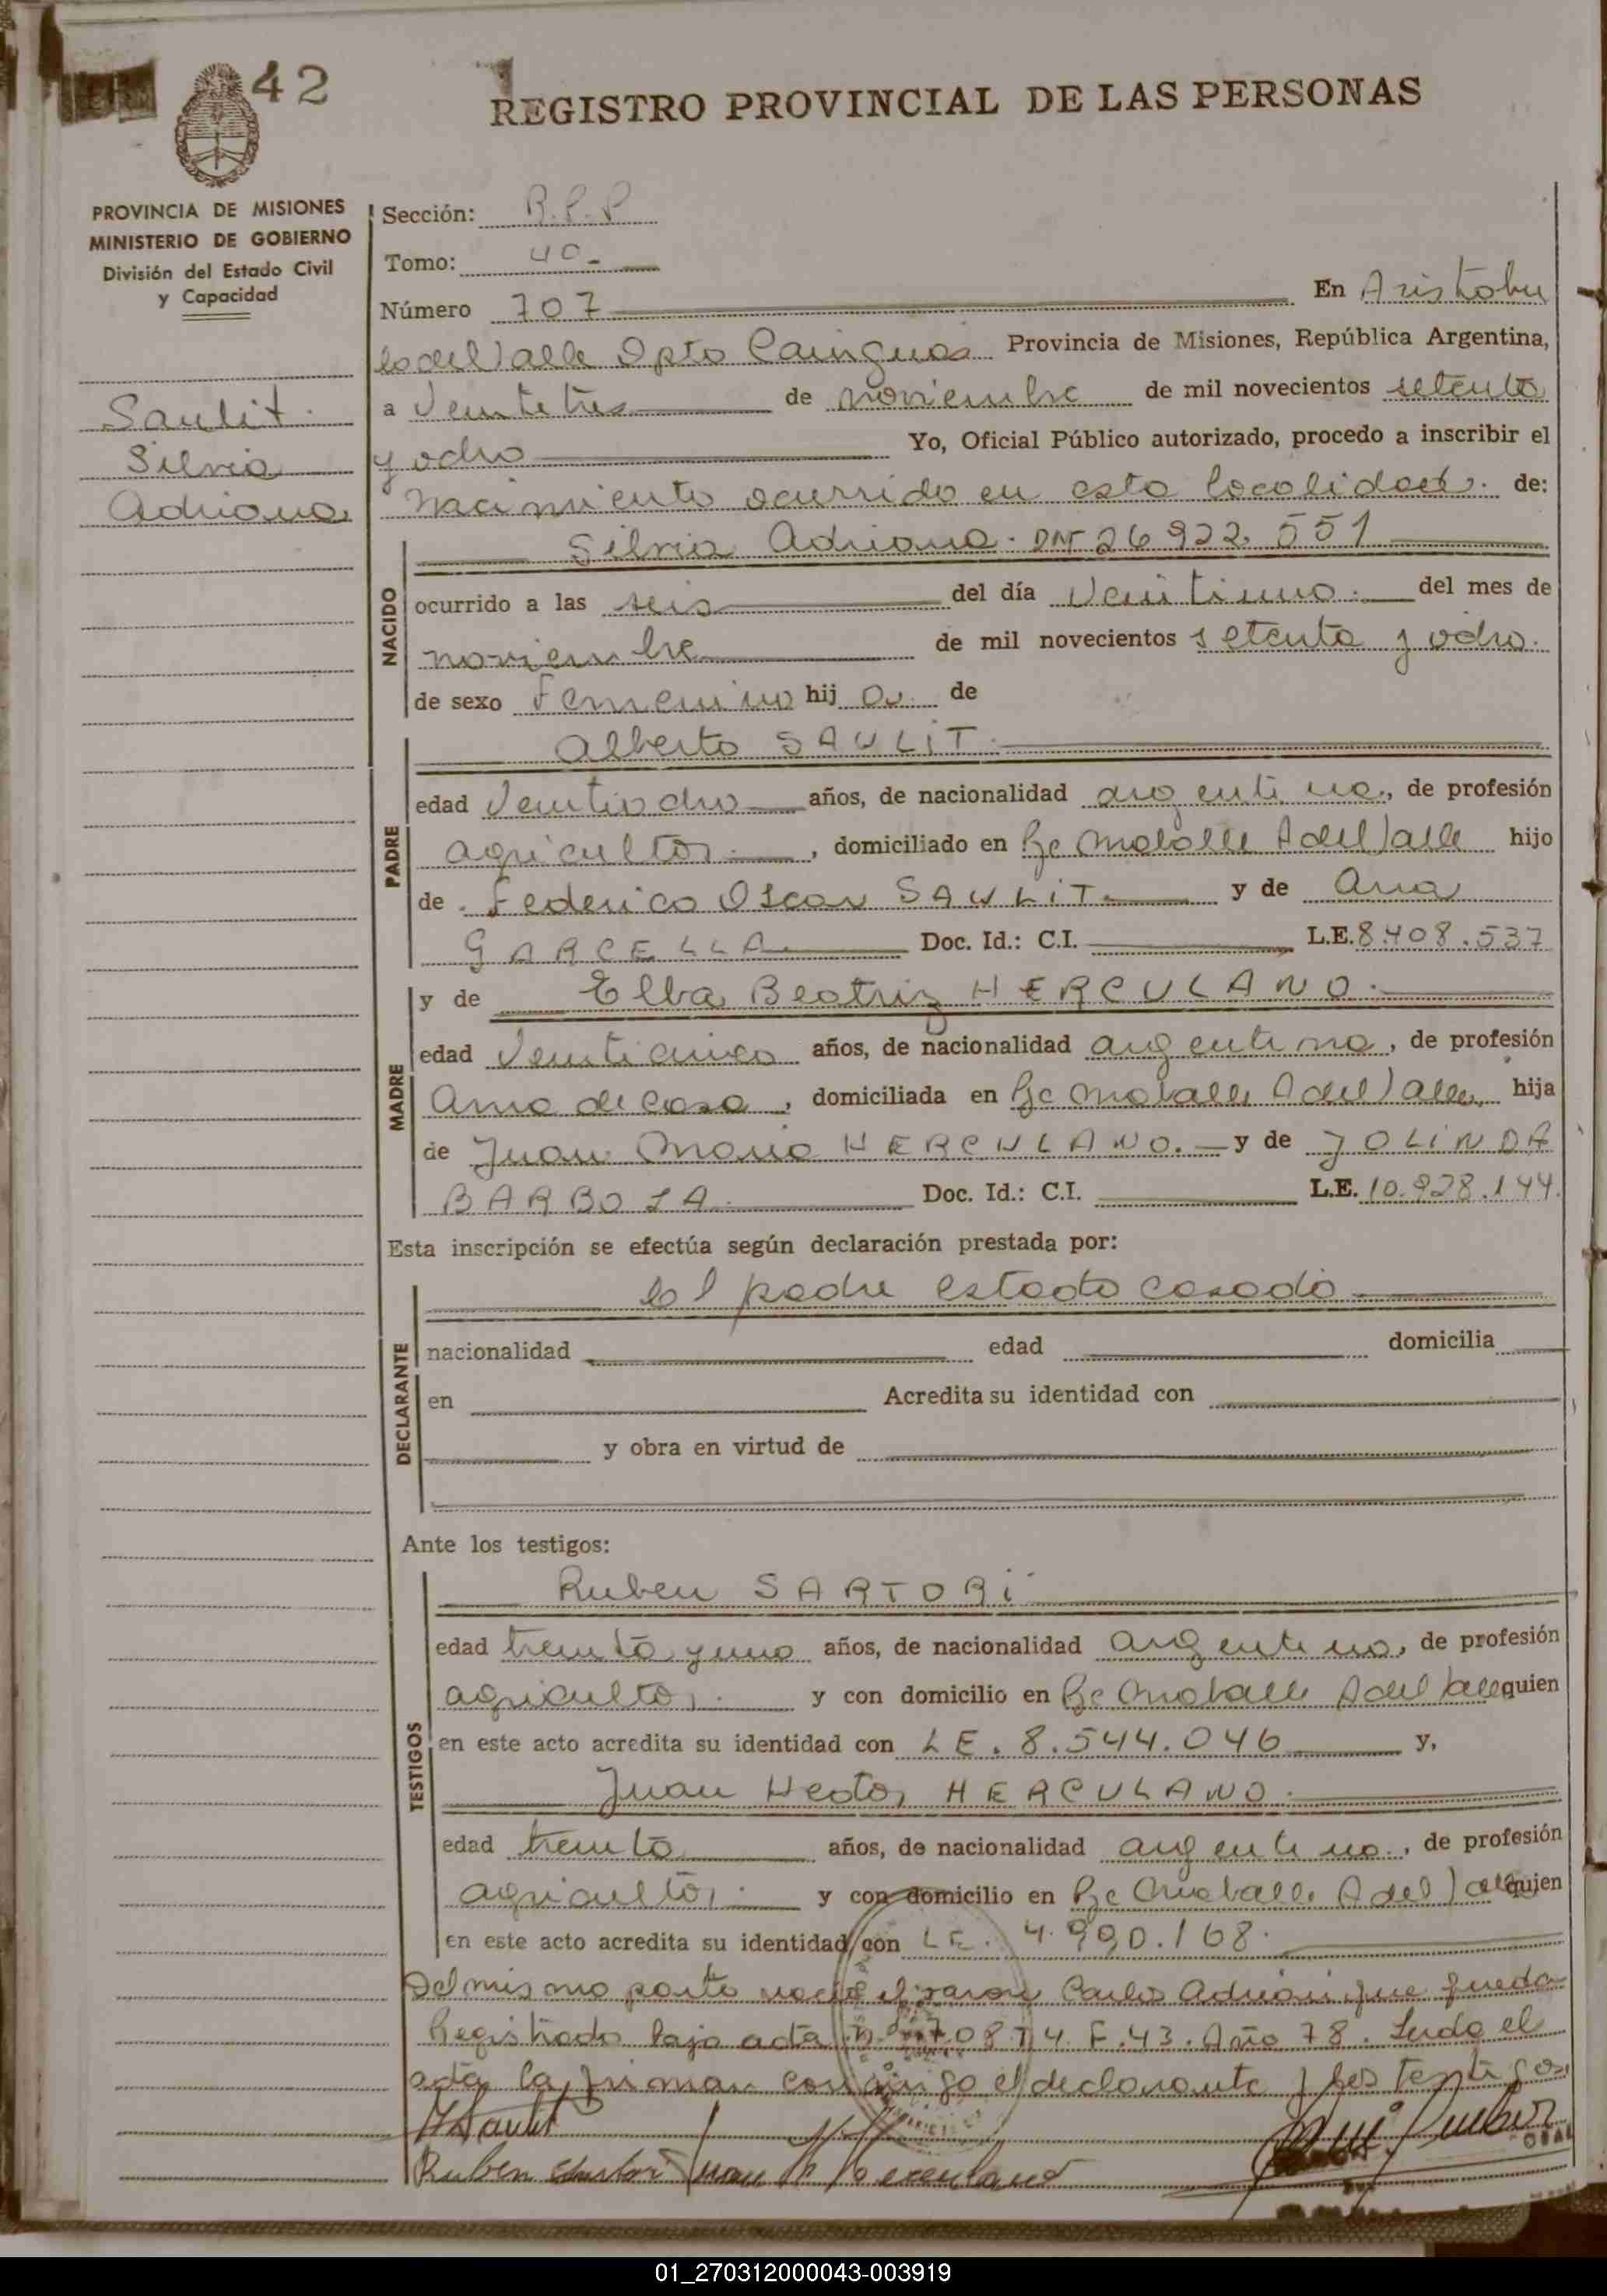 42
REGISTRO PROVINCIAL DE LAS PERSONAS
PROVINCIA DE MISIONES
MINISTERIO DE GOBIERNO
División del Estado Civil
y Capacidad
Saulit
Silvia
Adriana
Sección: R.P.P
Tomo: 40-
Número 707 En Aristobu
lo del Valle Dpto Cainguas Provincia de Misiones, República Argentina,
a Veintitres de noviembre de mil novecientos setenta
y ocho Yo, Oficial Público autorizado, procedo a inscribir el
nacimiento ocurrido en esta localidad. de:
NACIDO
Silvia Adriana. DNI 26.922.551
ocurrido a las seis del día Veintiuno. del mes de
noviembre de mil novecientos setenta y ocho.
de sexo Femenino hija. de
PADRE
Alberto SAULIT.
edad Veintiocho años, de nacionalidad argentina, de profesión
agricultor , domiciliado en Bº A del Valle hijo
de Federico Oscar SAULIT y de Ana
GARCELLA. Doc. Id.: C.I. L.E. 8.408.537
MADRE
y de Elba Beatriz HERCULANO.
edad Veinticinco años, de nacionalidad argentina, de profesión
Ama de casa, domiciliada en A del Valle, hija
de Juan Mario HERCULANO. y de JOLINDA
BARBOSA. Doc. Id.: C.I. L.E. 10.928.144.
Esta inscripción se efectúa según declaración prestada por:
DECLARANTE
el padre estado casado
nacionalidad edad domicilia
en Acredita su identidad con
y obra en virtud de
Ante los testigos:
TESTIGOS
Ruben SARTORI
edad treinta y uno años, de nacionalidad argentino, de profesión
agricultor. y con domicilio en A del Valle quien
en este acto acredita su identidad con LE. 8.544.046 y,
Juan Hector HERCULANO.
edad treinta años, de nacionalidad argentino., de profesión
agricultor. y con domicilio en A del Valle quien
en este acto acredita su identidad con LE. 4.990.168.
Del mismo parto nació el varon Carlos Adrian que queda
Registrado bajo acta nº 708 T 4. F. 43. Año 78. Leida el
acta la firman conmigo el declarante y los testigos
Saulit
Ruben Sartori Juan H Herculano
01_270312000043-003919